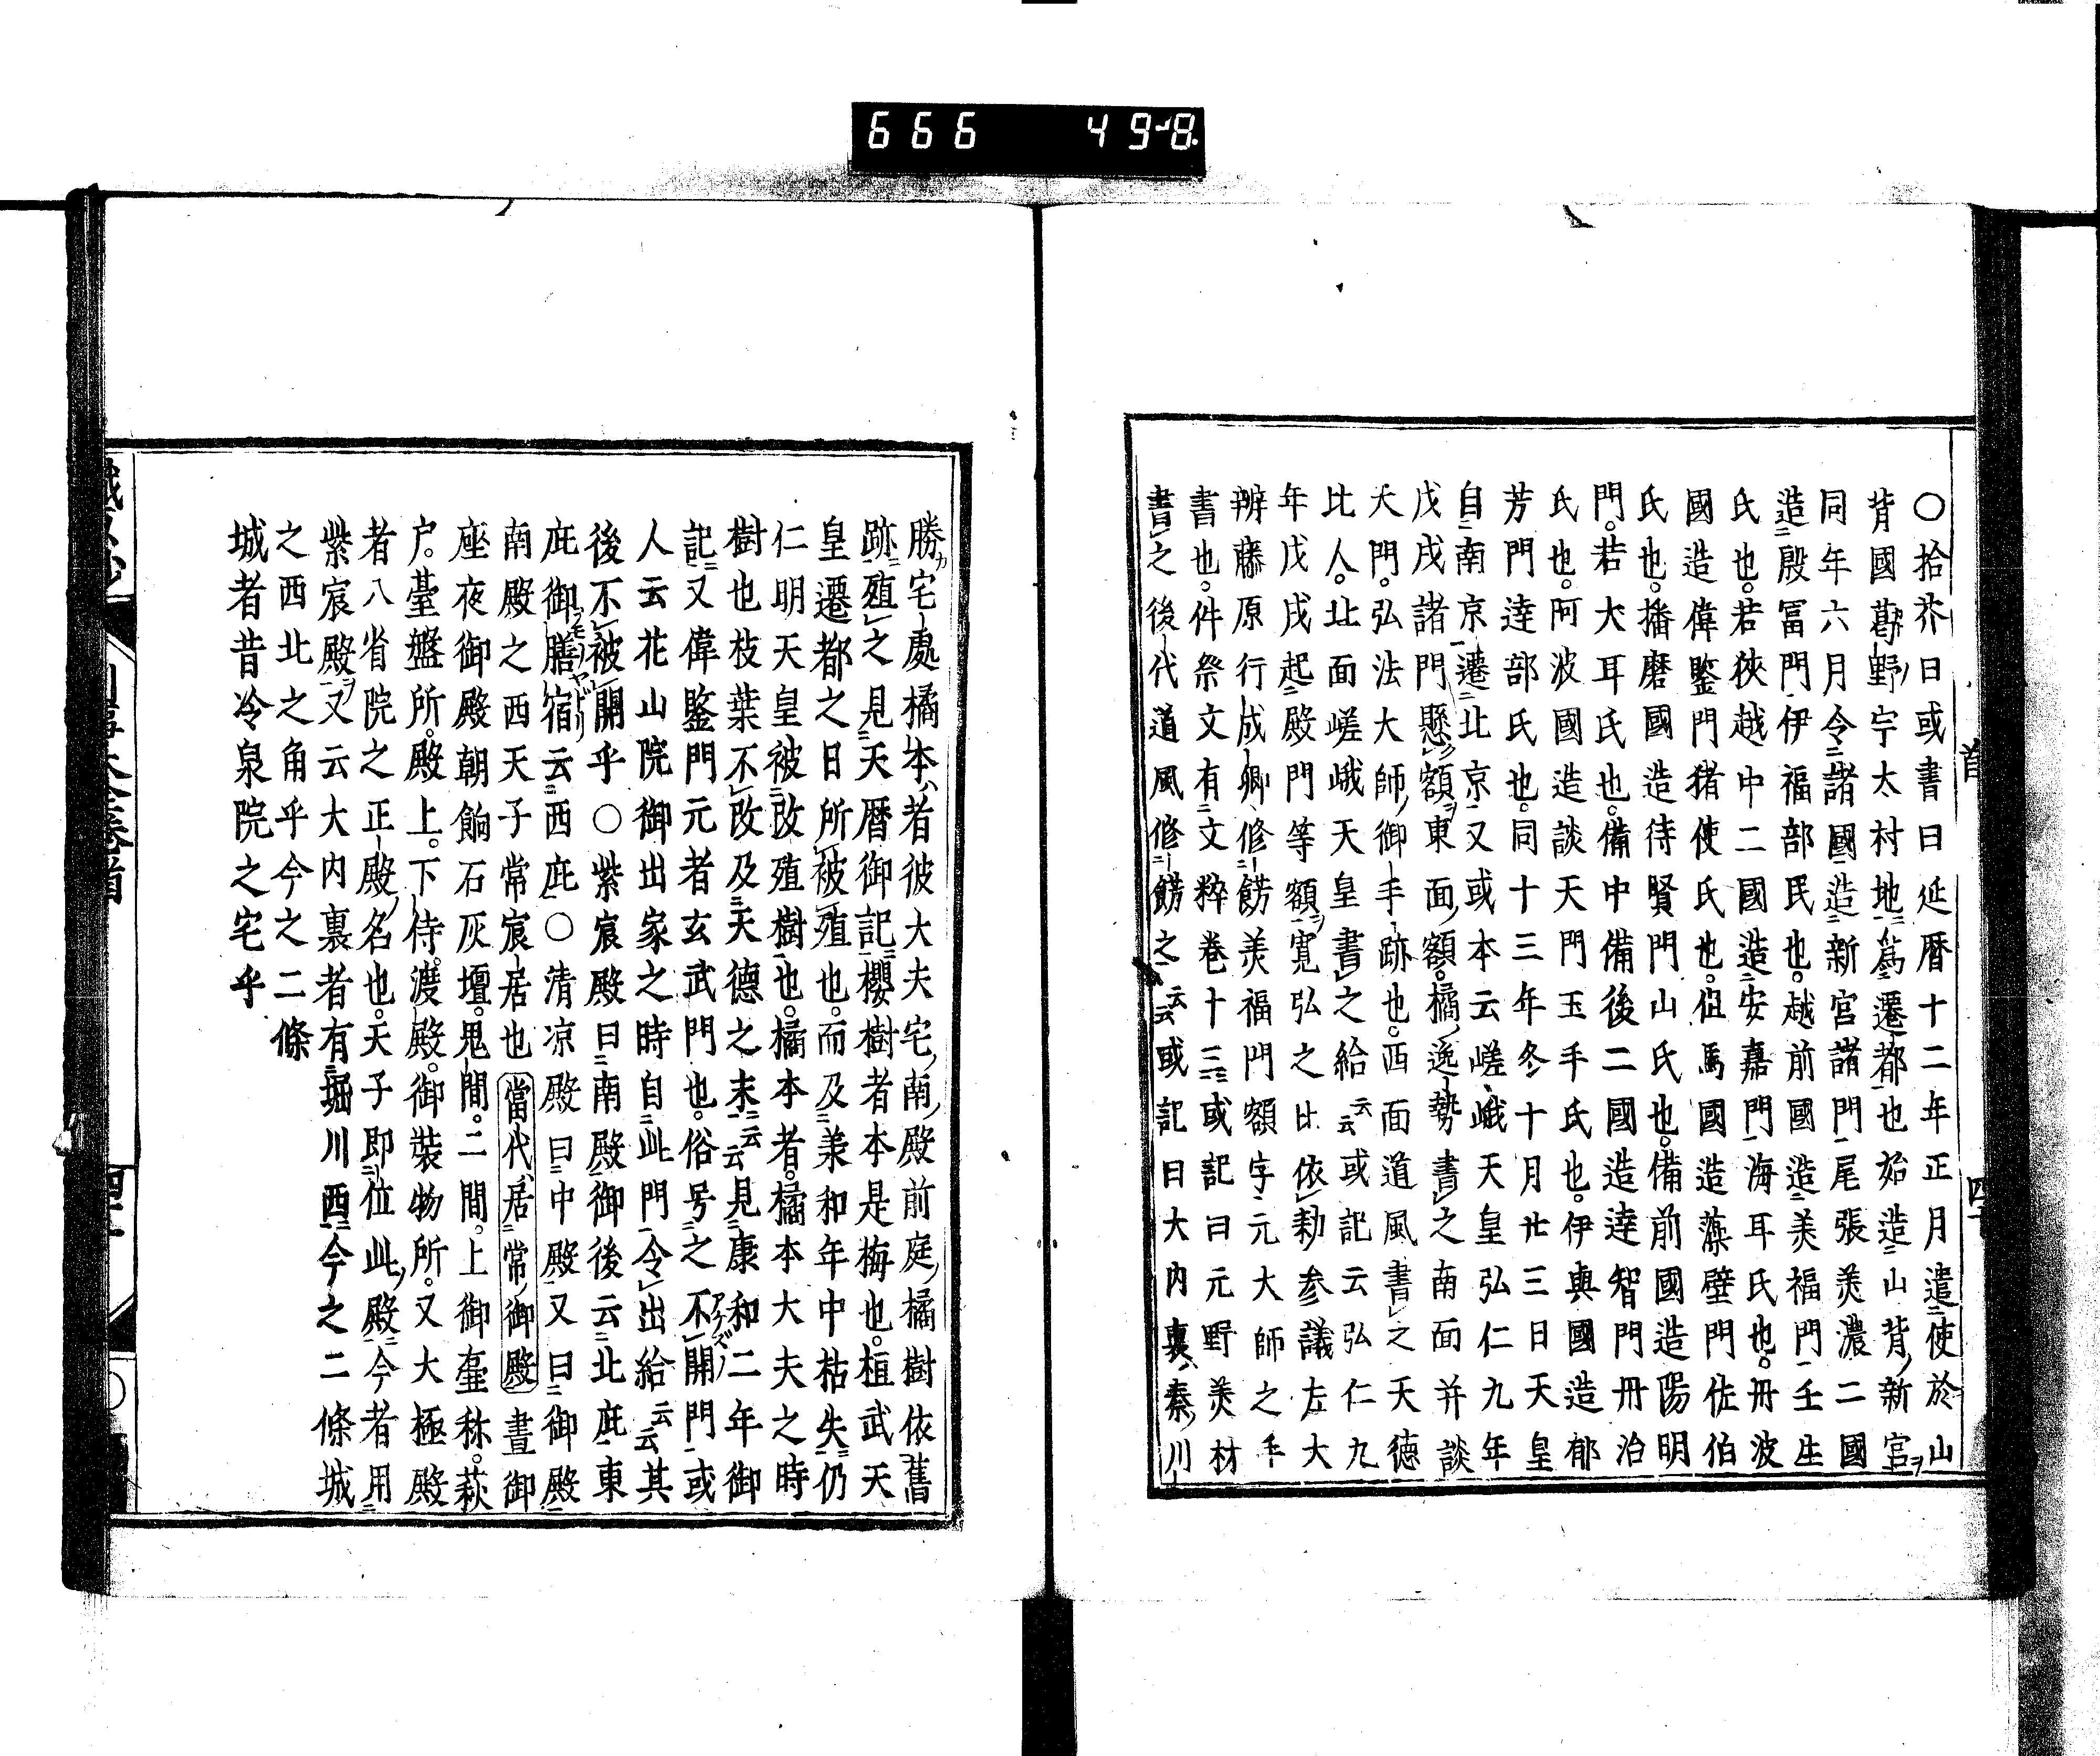 666 49-8.
〇拾芥曰或書曰延暦十二年正月遣使於山
背國葛野宇太村地爲遷都也始造山背新宮
同年六月令諸國造新宮諸門尾張美濃二國
造殷冨門伊福部氏也。越前國造美福門壬生
氏也。若狹越中二國造安嘉門海耳氏也。丹波
國造偉鑒門猪使氏也。但馬國造藻壁門佐伯
氏也。播磨國造待賢門山氏也。備前國造陽明
門。若犬耳氏也。備中備後二國造達智門丹治
氏也。阿波國造談天門玉手氏也。伊與國造郁
芳門達部氏也。同十三年冬十月廿三日天皇
自南京遷北京又或本云嵯峨天皇弘仁九年
戊戌諸門懸額東面額。橘逸勢書之南面并談
天門。弘法大師御手跡也。西面道風書之天徳
比人。北面嵯峨天皇書之給云云或記云弘仁九
年戊戌起殿門等額寛弘之比依勅参議左大
辨藤原行成卿修餝美福門額字元大師之手
書也。件祭文有文粹巻十三或記曰元野美材
書之後代道風修餝之云云或記曰大内裏秦川
勝宅處橘本者彼大夫宅南殿前庭橘樹依舊
跡殖之見天暦御記櫻樹者本是梅也。桓武天
皇遷都之日所被殖也。而及兼和年中枯失仍
仁明天皇被改殖樹也。橘本者。橘本大夫之時
樹也枝葉不改及天徳之末云云見康和二年御
記又偉鑒門元者玄武門也。俗号之不開門或
人云花山院御出家之時自此門令出給云云其
後不被開乎〇紫宸殿曰南殿御後云北庇東
庇御膳宿云西庇〇清凉殿曰中殿又曰御殿
南殿之西天子常宸居也當代居常御殿晝御
座夜御殿朝餉石灰壇。鬼間。二間。上御壷祢。萩
戸。臺盤所。殿上。下侍。渡殿。御裝物所。又大極殿
者八省院之正殿名也。天子即位此殿今者用
紫宸殿又云大内裏者有堀川西今之二條城
之西北之角乎今之二條
城者昔冷泉院之宅乎